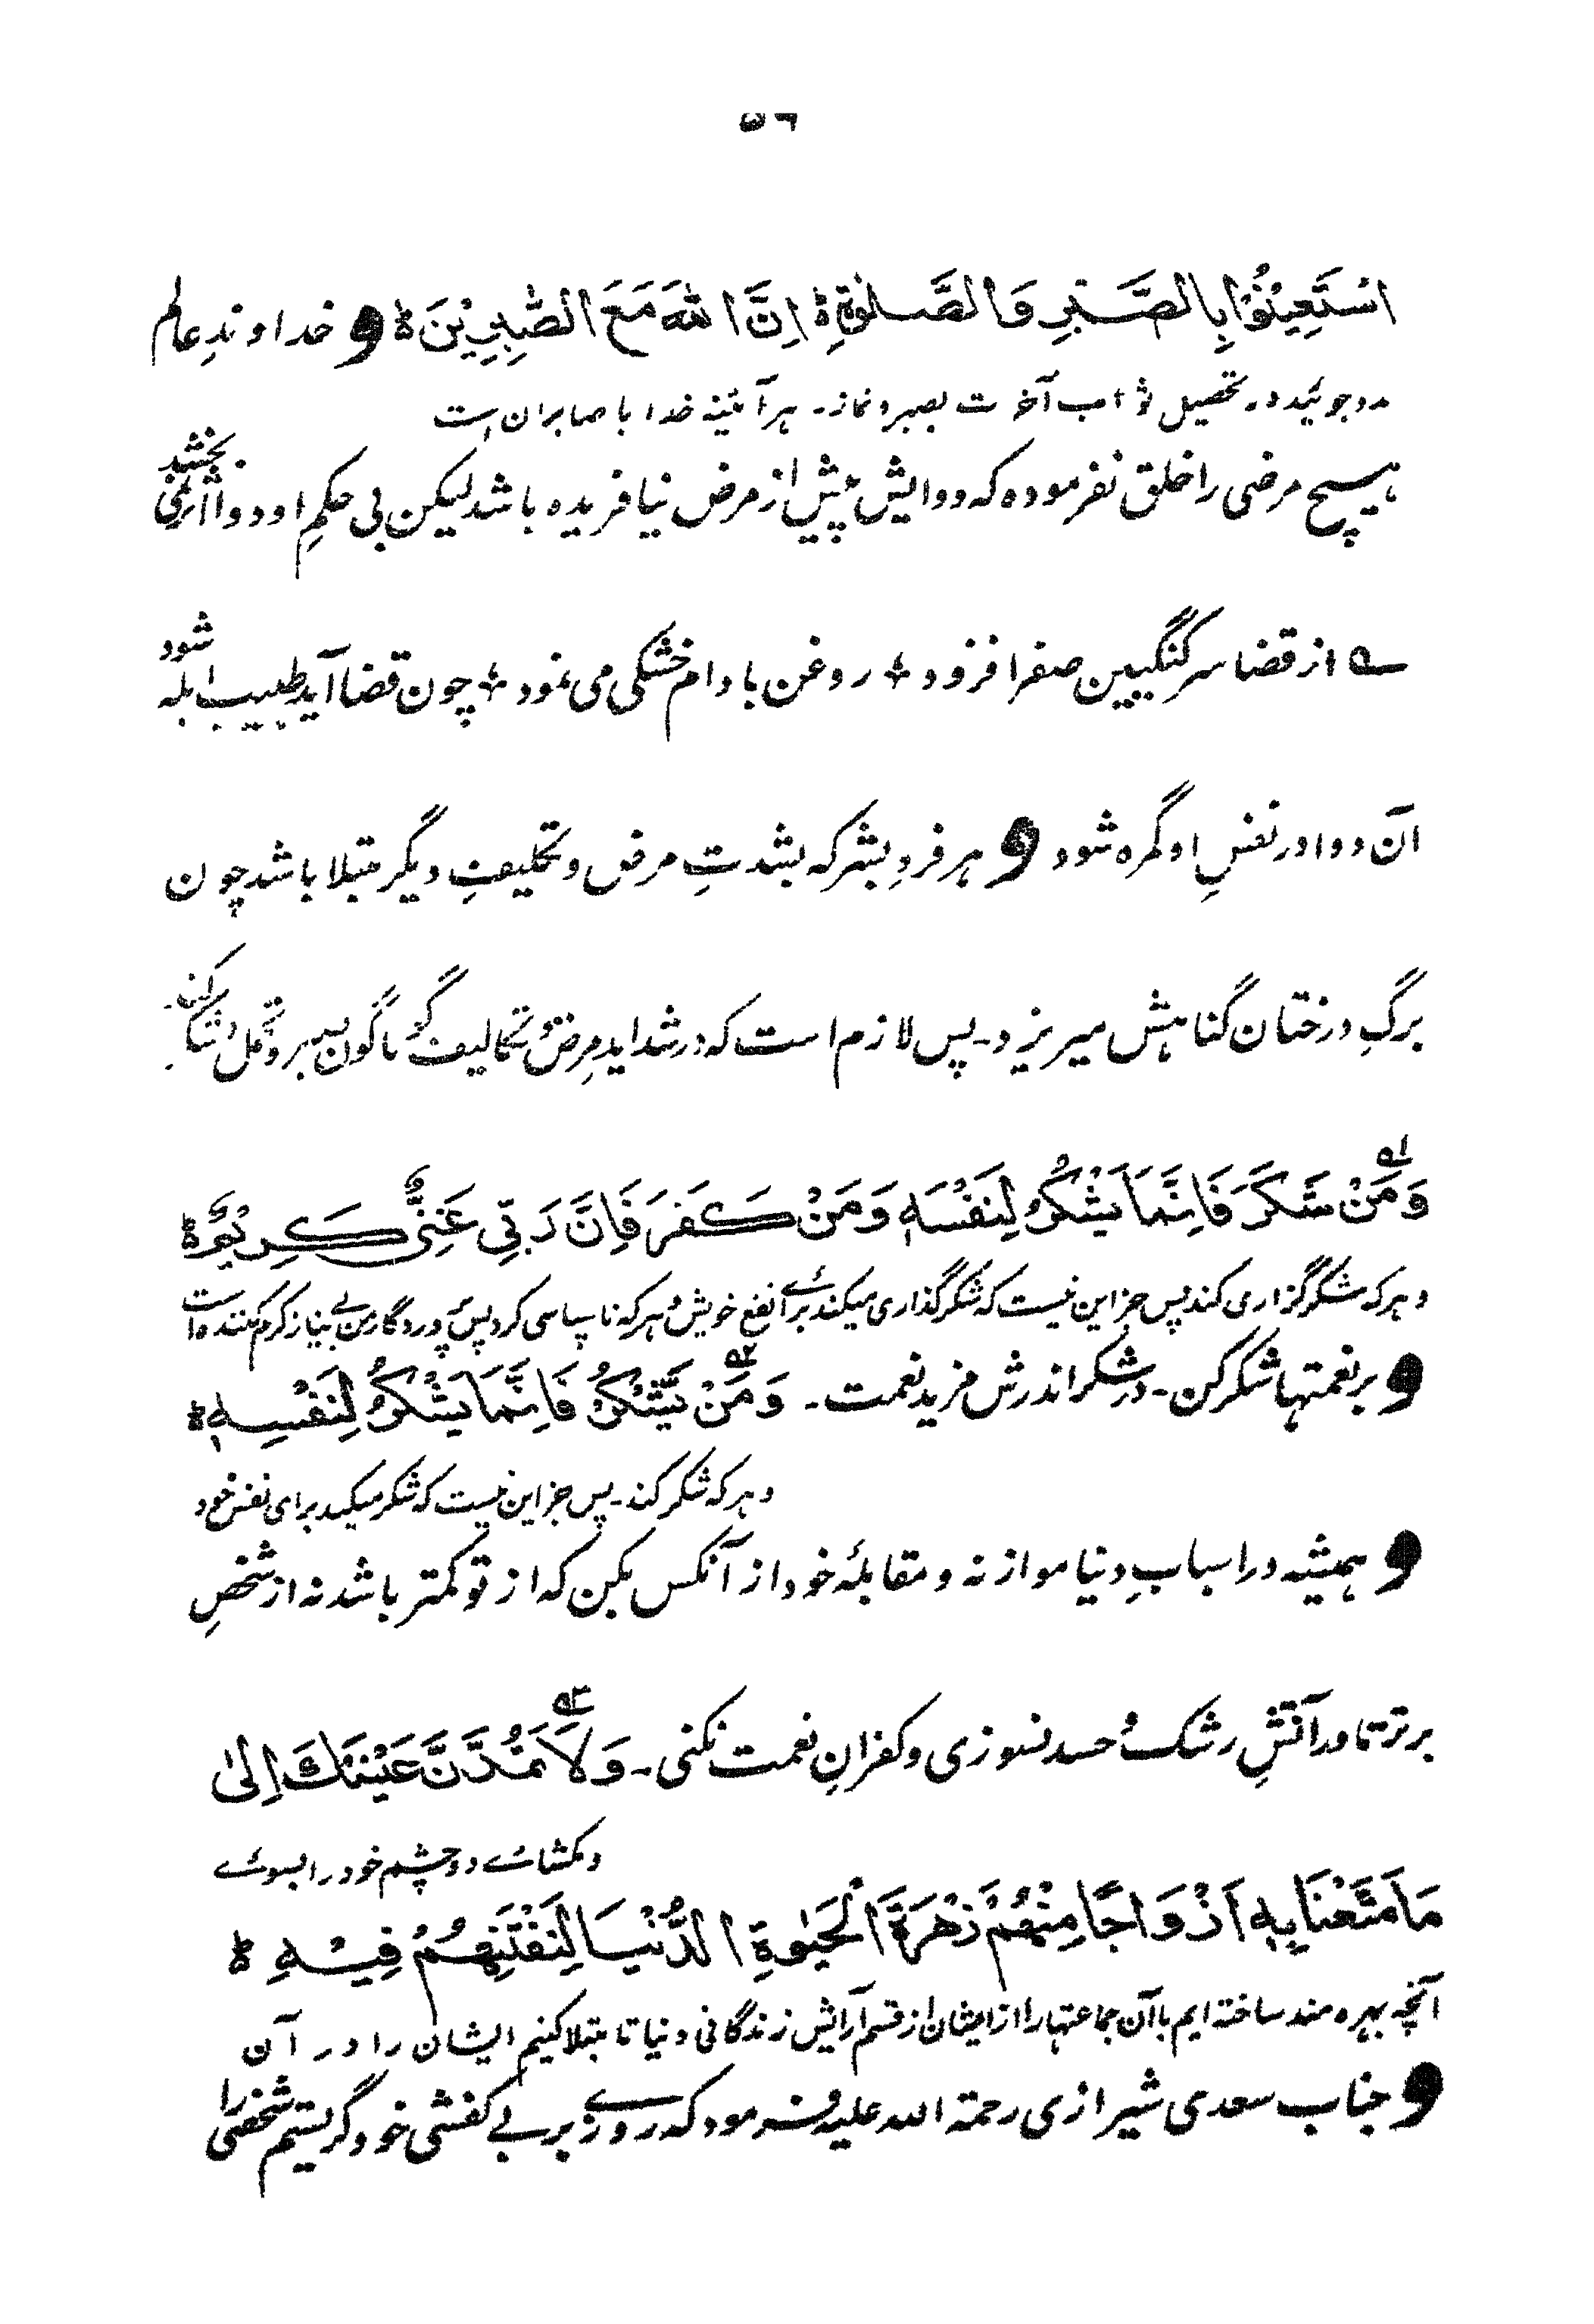 ٥٦
اسْتَعِيْنُوْا بِالصَّبْرِ وَالصَّلٰوةِ ؕ اِنَّ اللّٰهَ مَعَ الصّٰبِرِيْنَ ؕ و خداوندِ عالم
مدد جوئید در تحصیل ثواب آخرت بصبر و نماز۔ ہر آئینہ خدا با صابران است
ہیچ مرضی را خلق نفرمودہ کہ دوایش پیش از مرض نیافریدہ باشد لیکن بی حکمِ او دوا اثر نمی بخشید
؎ از قضا سرکنگبین صفرا فزود ؛ روغن بادام خشکی می نمود ؛ چون قضا آید طبیب ابلہ شود
آن دوا در نفسِ او گمرہ شود و ہر فردِ بشر کہ بشدتِ مرض و تکلیفِ دیگر مبتلا باشد چون
برگِ درختان گناہش میریزد۔ پس لازم است کہ در شدایدِ مرض و تکالیف گوناگون صبر و تحمل و شکر کند۔
وَمَنْ شَكَرَ فَاِنَّمَا يَشْكُرُ لِنَفْسِهٖ وَمَنْ كَفَرَ فَاِنَّ رَبِّيْ غَنِيٌّ كَرِيْمٌ ؕ ٥١
و ہر کہ شکر گزاری کند پس جز این نیست کہ شکر گذاری میکند برائے نفع خویش و ہر کہ ناسپاسی کرد پس پروردگار من بے نیاز کرم کنندہ است
و بر نعمتہا شکر کن۔ در شکر اندرش مزید نعمت۔ وَمَنْ يَّشْكُرْ فَاِنَّمَا يَشْكُرُ لِنَفْسِهٖ ؕ ٥٢
و ہر کہ شکر کند۔ پس جز این نیست کہ شکر میکند برای نفس خود
و ہمیشہ در اسبابِ دنیا موازنہ و مقابلۂ خود از آنکس بکن کہ از تو کمتر باشد نہ از شخصِ
برتر تا در آتشِ رشک و حسد نسوزی و کفرانِ نعمت نکنی۔ وَلَا تَمُدَّنَّ عَيْنَيْكَ اِلٰى ٥٣
و مکشائے دو چشم خود را بسوئے
مَا مَتَّعْنَا بِهٖ اَزْوَاجًا مِنْهُمْ زَهْرَةَ الْحَيٰوةِ الدُّنْيَا لِنَفْتِنَهُمْ فِيْهِ ؕ
آنچہ بہرہ مند ساختہ ایم باآن جماعتہا را از ایشان از قسم آرایش زندگانی دنیا تا مبتلا کنیم ایشان را در آن
و جناب سعدی شیرازی رحمۃ اللہ علیہ فرمود کہ روزے بر بے کفشی خود گریستم شخصی را